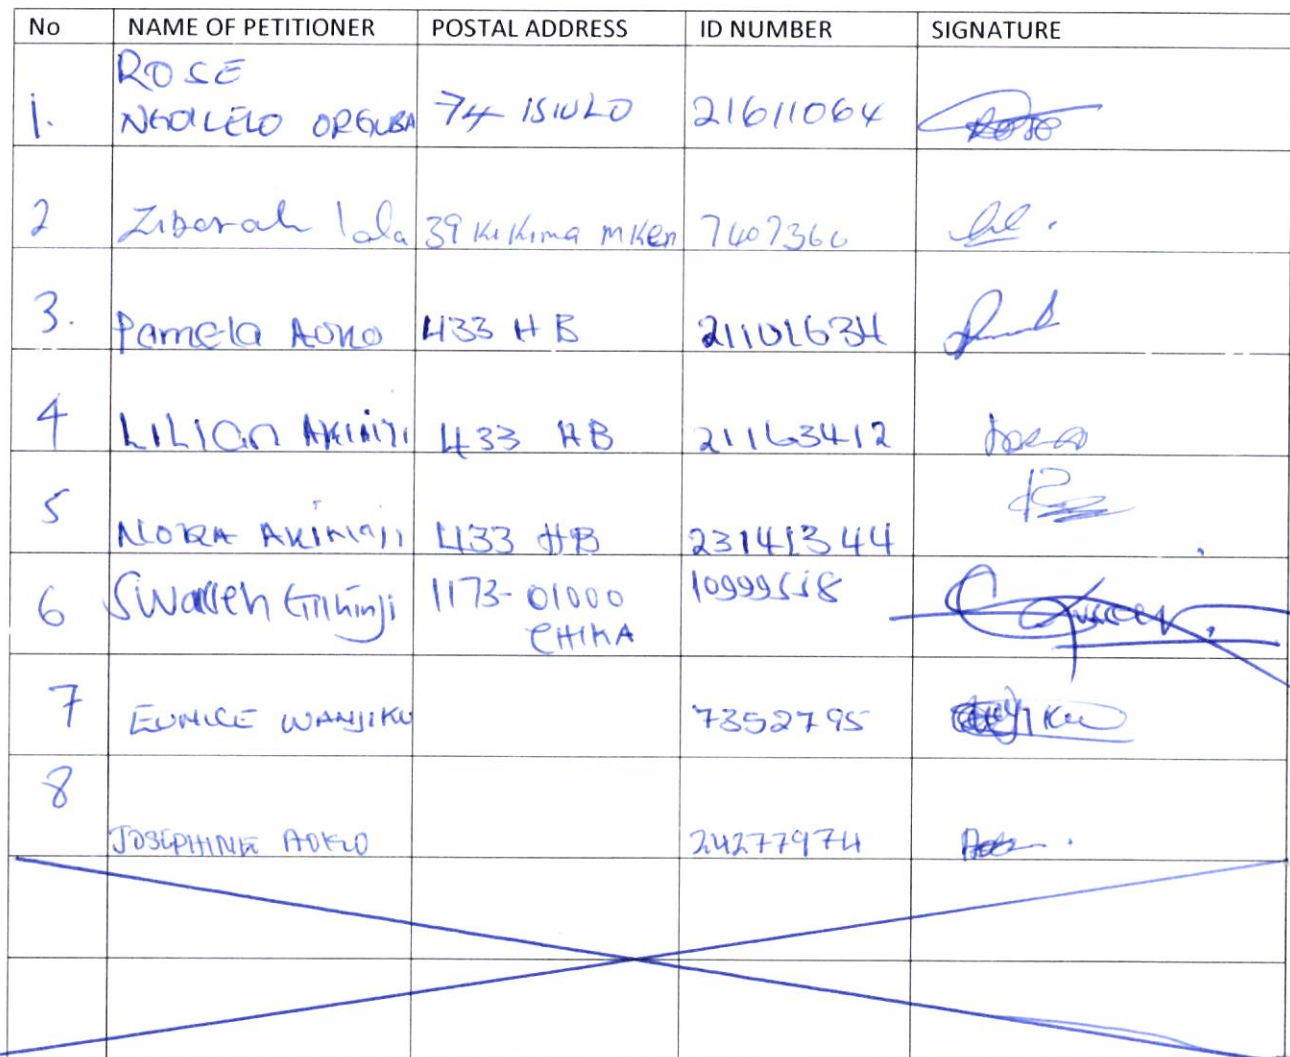 No NAME OF PETITIONER POSTAL ADDRESS ID NUMBER SIGNATURE
ROSE
1. 74 ISIOLO 21611064
2 Ziborah lala 39 Kikima 7407366
3. Pamela AOKO 433 HB 21101634
4 LILIAN AKINYI 433 HB 21163412
5 NORA AKINYI 433 HB 23141344
6 Swaleh Githinji 1173-01000
THIKA
7 EUNICE WANJIKU 7352795
8
JOSEPHINE AOKO 24277974